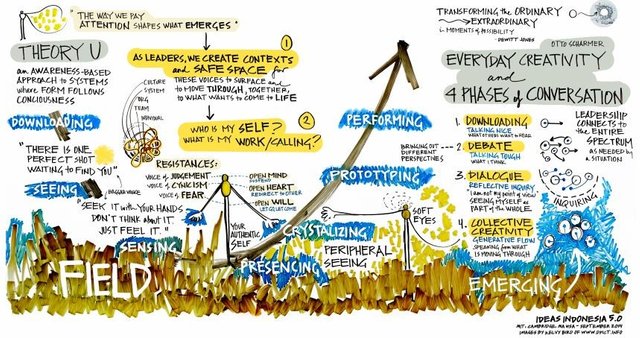 "THE WAY WE PAY
ATTENTION SHAPES WHAT EMERGES"
THEORY U
an AWARENESS-BASED
APPROACH to SYSTEMS
WHERE FORM FOLLOWS
CONCIOUSNESS
DOWNLOADING
"THERE IS ONE
PERFECT SHOT
WAITING to FIND YOU"
SEEING
BAGGER VANCE
"SEEK IT WITH YOUR HANDS
DON'T THINK ABOUT IT
JUST FEEL IT."
SENSING
FIELD
1
AS LEADERS, WE CREATE CONTEXTS
and SAFE SPACE for
THESE VOICES to SURFACE and
to MOVE THROUGH, TOGETHER,
to WHAT WANTS to COME to LIFE
CULTURE
SYSTEM
ORG
TEAM
INDIVIDUAL
2
WHO IS MY SELF?
WHAT IS MY WORK/CALLING?
RESISTANCES:
VOICE of JUDGEMENT
VOICE of CYNICISM
VOICE of FEAR
OPEN MIND
SUSPEND
OPEN HEART
REDIRECT to OTHER
OPEN WILL
LET GO, LET COME
YOUR
AUTHENTIC
SELF
PRESENCING
CRYSTALIZING
PROTOTYPING
PERFORMING
PERIPHERAL
SEEING
SOFT
EYES
TRANSFORMING the ORDINARY
to EXTRAORDINARY
in MOMENTS of POSSIBILITY
- DEWITT JONES
OTTO SCHARMER
EVERYDAY CREATIVITY
and
4 PHASES of CONVERSATION
1. DOWNLOADING
TALKING NICE
WHAT OTHERS WANT to HEAR
BRINGING OUT
DIFFERENT
PERSPECTIVES
2. DEBATE
TALKING TOUGH
WHAT I THINK
3. DIALOGUE
REFLECTIVE INQUIRY
I am not MY point of view
SEEING MYSELF as
PART of the WHOLE
4. COLLECTIVE
CREATIVITY
GENERATIVE FLOW
SPEAKING FROM WHAT
IS MOVING THROUGH
LEADERSHIP
CONNECTS
to the ENTIRE
SPECTRUM
AS NEEDED by
a SITUATION
INQUIRING
EMERGING
IDEAS INDONESIA 5.0
MIT. CAMBRIDGE, MA USA - SEPTEMBER 2014
IMAGES BY KELVY BIRD OF WWW.DPICT.INFO